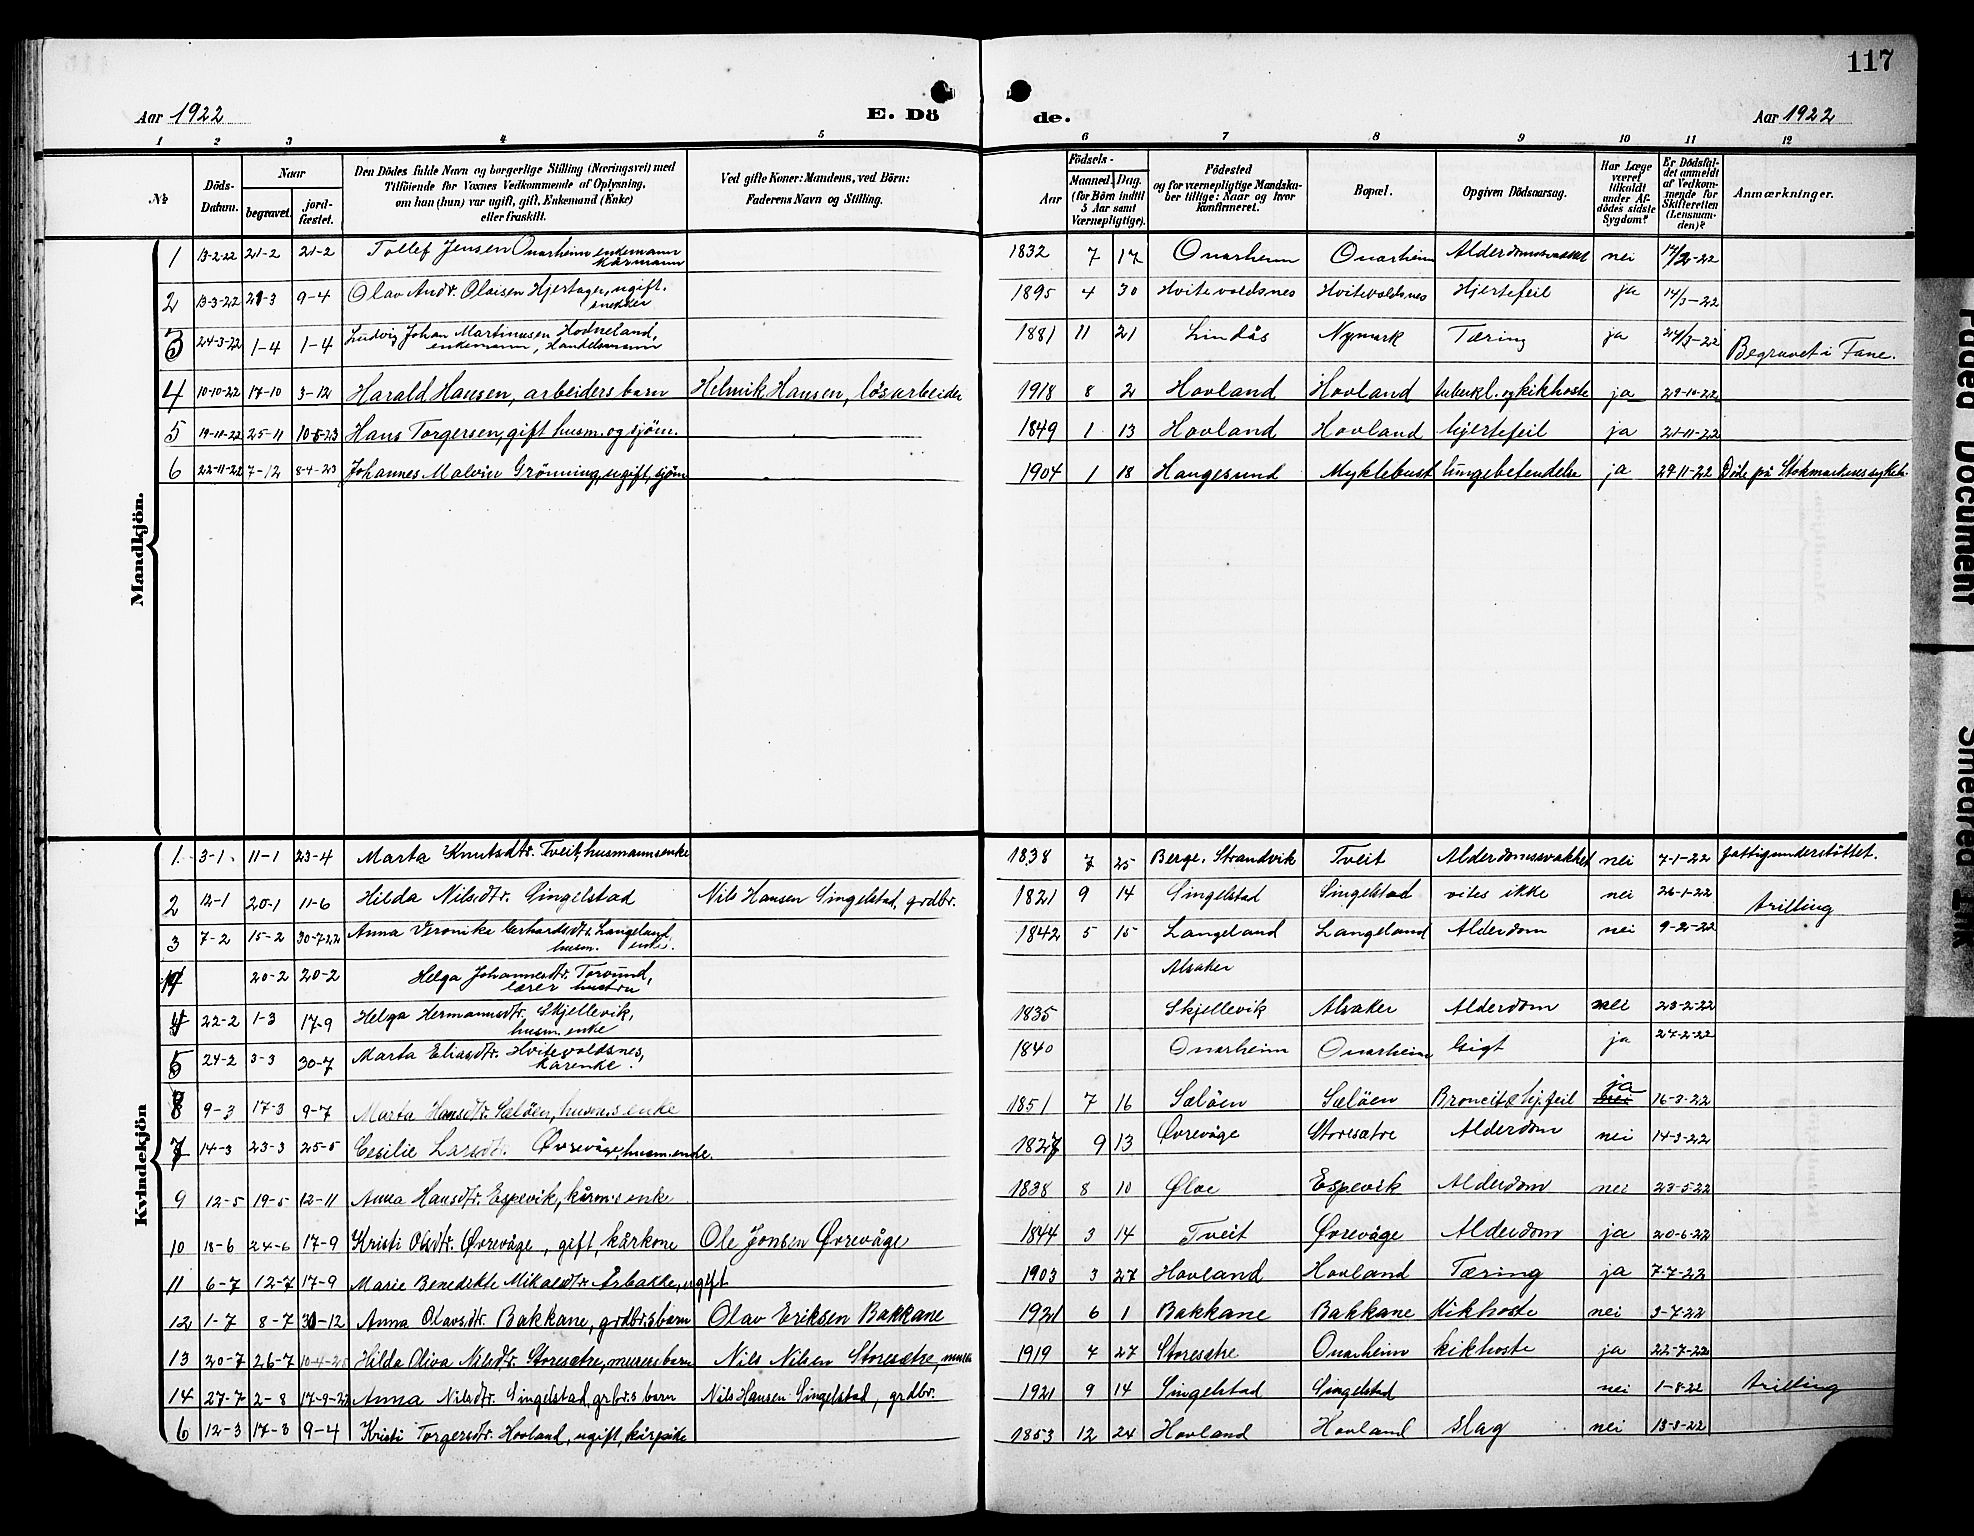 117
Aar 1922
E. Dö
de.
Aar 1922
1 2 3 4 5 6 7 8 9 10 11 12
№
Döds-Datum.
Naar
begravet.
jord-fæstet.
Den Dödes fulde Navn og borgerlige Stilling (Næringsvei) med
Tilföiende for Voxnes Vedkommende af Oplysning,
om han (hun) var ugift, gift, Enkemand (Enke)
eller fraskilt.
Ved gifte Koner: Mandens, ved Börn:
Faderens Navn og Stilling.
Födsels-
Aar
Maaned. Dag.
(for Börn indtil
5 Aar samt
Værnepligtige).
Födested
og for værnepligtige Mandska-
ber tillige: Naar og hvor
konfirmeret.
Bopæl.
Opgiven Dödsaarsag.
Har Læge
været
tilkaldt
under Af-
dödes sidste
Sygdom?
Er Dödsfal-
det anmeldt
af Vedkom-
mende for
Skifteretten
(Lensman-
den)?
Anmærkninger.
Mandkjön.
1 13-2-22 21-2 21-2 Tollef Jensen Onarheim enkemann kårmann 1832 7 17 Onarheim Onarheim Alderdomssvakket nei 17/2-22
2 13-3-22 21-3 9-4 Olav Andr. Olaisen Hjertager, ugift. 1895 4 30 Hvitevoldsnes Hvitevoldsnes Hjertefeil ja 14/3-22
3 24-3-22 1-4 1-4 Ludvig Johan Martinusen Hodneland, enkemann, Handelsmann 1881 11 21 Lindås Nymark Tæring ja 24/3-22 Begravet i Fane.
4 10-10-22 17-10 3-12 Harald Hansen, arbeiders barn Helmik Hansen, løsarbeider 1918 8 2 Hovland Hovland tuberkl. og kikhoste ja 29-10-22
5 19-11-22 25-11 10-5-23 Hans Torgersen, gift husm. og sjøm. 1849 1 13 Hovland Hovland hjertefeil ja 21-11-22
6 22-11-22 7-12 8-4-23 Johannes Malvin Grønning, ugift, sjøm 1904 1 18 Haugesund Myklebust lungebetendelse ja 29-11-22 Døde på Stokmarknes sykeh.
Kvindekjön
1 3-1 11-1 23-4 Marta Knutsdtr. Tveit, husmannsenke 1838 7 25 Berge, Strandvik Tveit Alderdomssvakket nei 7-1-22 fattigunderstøttet.
2 12-1 20-1 11-6 Hilda Nilsdtr. Singelstad Nils Hansen Singelstad, grdbr. 1821 9 14 Singelstad Singelstad vites ikke nei 26-1-22 trilling
3 7-2 15-2 30-7-22 Anna Veronike Gerhardsdtr. Langeland, husm. enke. 1842 5 15 Langeland Langeland Alderdom nei 9-2-22
4 20-2 20-2 Helga Johannesdtr. Torsund, lærer hustru Alsaker
4 22-2 1-3 17-9 Helga Hermannsdtr. Skjellevik, husm. enke 1835 Skjellevik Alsaker Alderdom nei 23-2-22
5 24-2 3-3 30-7 Marta Eliasdtr. Hvitevoldsnes, kårenke. 1840 Onarheim Onarheim Gigt ja 24-2-22
8 9-3 17-3 9-7 Marta Hansdtr. Sæløen, husm.s enke 1851 7 16 Sæløen Sæløen Broncit & hj.feil ja nei 16-3-22
7 14-3 23-3 25-5 Cesilie Larsdtr. Øvrevåge, husm.enke. 1827 9 13 Øvrevåge Storesætre Alderdom nei 14-3-22
9 12-5 19-5 12-11 Anna Hansdtr. Espevik, kårm.s enke 1838 8 10 Ølve Espevik Alderdom nei 23-5-22
10 18-6 24-6 17-9 Kristi Olsdtr. Øvrevåge, gift, kårkone Ole Jonsen Øvrevåge 1844 3 14 Tveit Øvrevåge Alderdom ja 20-6-22
11 6-7 12-7 17-9 Marie Benedikte Mikalsdtr. Årbakke, ugift 1903 3 27 Hovland Hovland Tæring ja 7-7-22
12 1-7 8-7 30-12 Anna Olavsdtr. Bakkane, grdbr.s barn Olav Eriksen Bakkane 1921 6 1 Bakkane Bakkane Kikhoste nei 3-7-22
13 20-7 26-7 10-4-25 Hilda Oliva Nilsdtr. Storesætre, murers barn Nils Nilsen Storesætre, murer 1919 4 27 Storesætre Onarheim kikhoste ja 22-7-22
14 27-7 2-8 17-9-22 Anna Nilsdtr. Singelstad, grbr.s barn Nils Hansen Singelstad, grdbr. 1921 9 14 Singelstad Singelstad nei 1-8-22 trilling
6 12-3 17-3 9-4 Kristi Torgersdtr. Hovland, ugift, 1853 12 24 Hovland Hovland slag nei 13-3-22
Faded Document
Smeared Ink